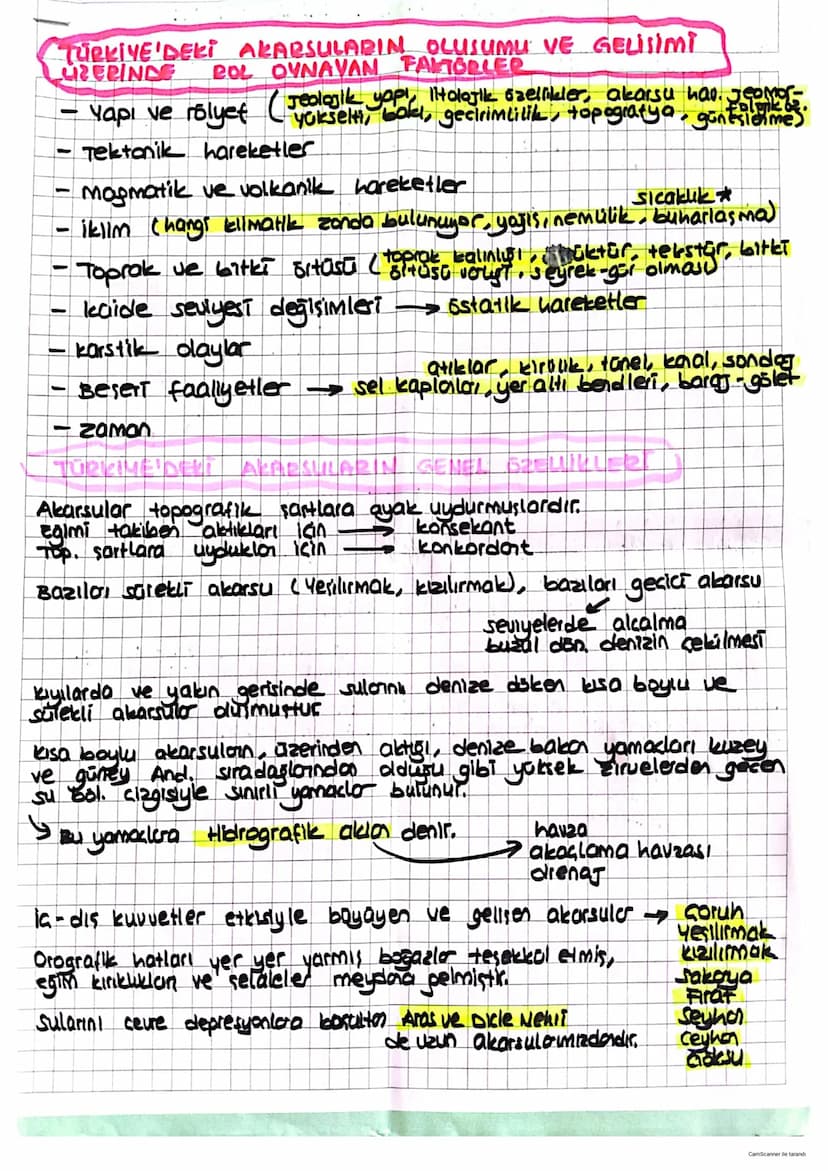 TÜRKİYE'DEKİ AKARSULARIN OLUSUMU VE GELİSİMİ
ÜZERİNDE ROL OYNAYAN FAKTÖRLER
- Yapı ve rölyef (Jeolojik yapı, litolojik özellikler, akarsu hav. Jeomor-
yükselti, bakı, geçirimlilik, topografya, güneşlenme)
- Tektonik hareketler
- Magmatik ve volkanik hareketler
sıcaklık *
- iklim (hangi klimatik zonda bulunuyor, yağış, nemlilik, buharlaşma)
- Toprak ve bitki örtüsü (toprak kalınlığı, tekstür, bitki
örtüsü seyrek-gür olması
- kaide seviyesi değişimleri → östatik hareketler
- karstik olaylar
atıklar, kirlilik, tünel, kanal, sondaj
- Beşeri faaliyetler → sel kapanları, yer altı bendleri, baraj-gölet
- zaman
TÜRKİYE'DEKİ AKARSULARIN GENEL ÖZELLİKLERİ
Akarsular topografik şartlara ayak uydurmuşlardır.
Eğimi takiben aktıkları için → konsekant
Top. şartlara uydukları için → konkordant
Bazıları sürekli akarsu (Yeşilırmak, kızılırmak), bazıları geçici akarsu
seviyelerde alçalma
buzul dön. denizin çekilmesi
kıyılarda ve yakın gerisinde sularını denize döken kısa boylu ve
sürekli akarsular oluşmuştur
kısa boylu akarsuların, üzerinden aktığı, denize bakan yamaçları kuzey
ve güney And. sıradağlarından olduğu gibi yüksek zirvelerden geçen
su böl. çizgisiyle sınırlı yamaçlar bulunur.
↳ Bu yamaçlara Hidrografik aklan denir. → havza
akaçlama havzası
drenaj
iç-dış kuvvetler etkisiyle büyüyen ve gelişen akarsular → Çoruh
Yeşilırmak
Kızılırmak
Sakarya
Fırat
Seyhan
Ceyhan
Göksu
Orografik hatları yer yer yarmış boğazlar teşekkül etmiş,
eğim kırıklıkları ve şelaleler meydana gelmiştir.
Sularını çevre depresyonlara boşaltan Aras ve Dicle Nehri
de uzun akarsularımızdandır.
CamScanner ile tarandı